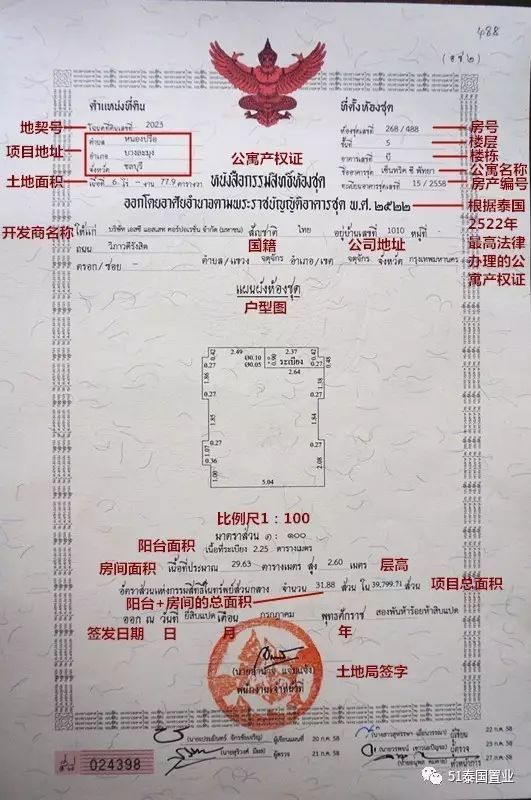 488
(อ.ช.๒)
ตำแหน่งที่ดิน
ที่ตั้งห้องชุด
地契号
โฉนดที่ดินเลขที่ 2023
ห้องชุดเลขที่ 268/488
房号
项目地址
ตำบล หนองปรือ
ชั้นที่ 5
楼层
อำเภอ บางละมุง
อาคารเลขที่ บี
楼栋
จังหวัด ชลบุรี
公寓产权证
ชื่ออาคารชุด เซ็นทริค ซี พัทยา
公寓名称
土地面积
เนื้อที่ 6 ไร่ - งาน 77.9 ตารางวา
ทะเบียนอาคารชุดเลขที่ 15/2558
房产编号
หนังสือกรรมสิทธิ์ห้องชุด
ออกโดยอาศัยอำนาจตามพระราชบัญญัติอาคารชุด พ.ศ. ๒๕๒๒
根据泰国
2522年
最高法律
办理的公
寓产权证
开发商名称
ให้แก่ บริษัท เอสซี แอสเสท คอร์ปอเรชั่น จำกัด (มหาชน) สัญชาติ ไทย อยู่บ้านเลขที่ 1010 หมู่ที่ -
国籍
公司地址
ถนน วิภาวดีรังสิต ตำบล/แขวง จตุจักร อำเภอ/เขต จตุจักร จังหวัด กรุงเทพมหานคร
ตรอก/ซอย
แผนผังห้องชุด
户型图
2.49
Ø0.10
Ø0.05
0.90
2.37
ระเบียง
0.42
0.42
0.48
0.27
0.27
2.64
1.86
1.38
0.27
0.27
1.85
1.84
0.27
0.27
1.07
0.36
1.00
2.08
5.04
比例尺1：100
มาตราส่วน ๑ : ๑๐๐
阳台面积
เนื้อที่ระเบียง 2.25 ตารางเมตร
房间面积
เนื้อที่ประมาณ 29.63 ตารางเมตร สูง 2.60 เมตร
层高
อัตราส่วนแห่งกรรมสิทธิ์ในทรัพย์ส่วนกลาง จำนวน 31.88 ส่วน ใน 39,799.71 ส่วน
项目总面积
阳台+房间的总面积
ออก ณ วันที่ ยี่สิบแปด เดือน กรกฎาคม พุทธศักราช สองพันห้าร้อยห้าสิบแปด
签发日期 日 月 年
土地局签字
พนักงานเจ้าหน้าที่
ผู้เขียนแผนที่ 20 ก.ค. 58
ผู้ตรวจ 21 ก.ค. 58
22 ก.ค. 58
ผู้เขียน
23 ก.ค. 58
ผู้ตรวจ
27 ก.ค. 58
024398
51泰国置业